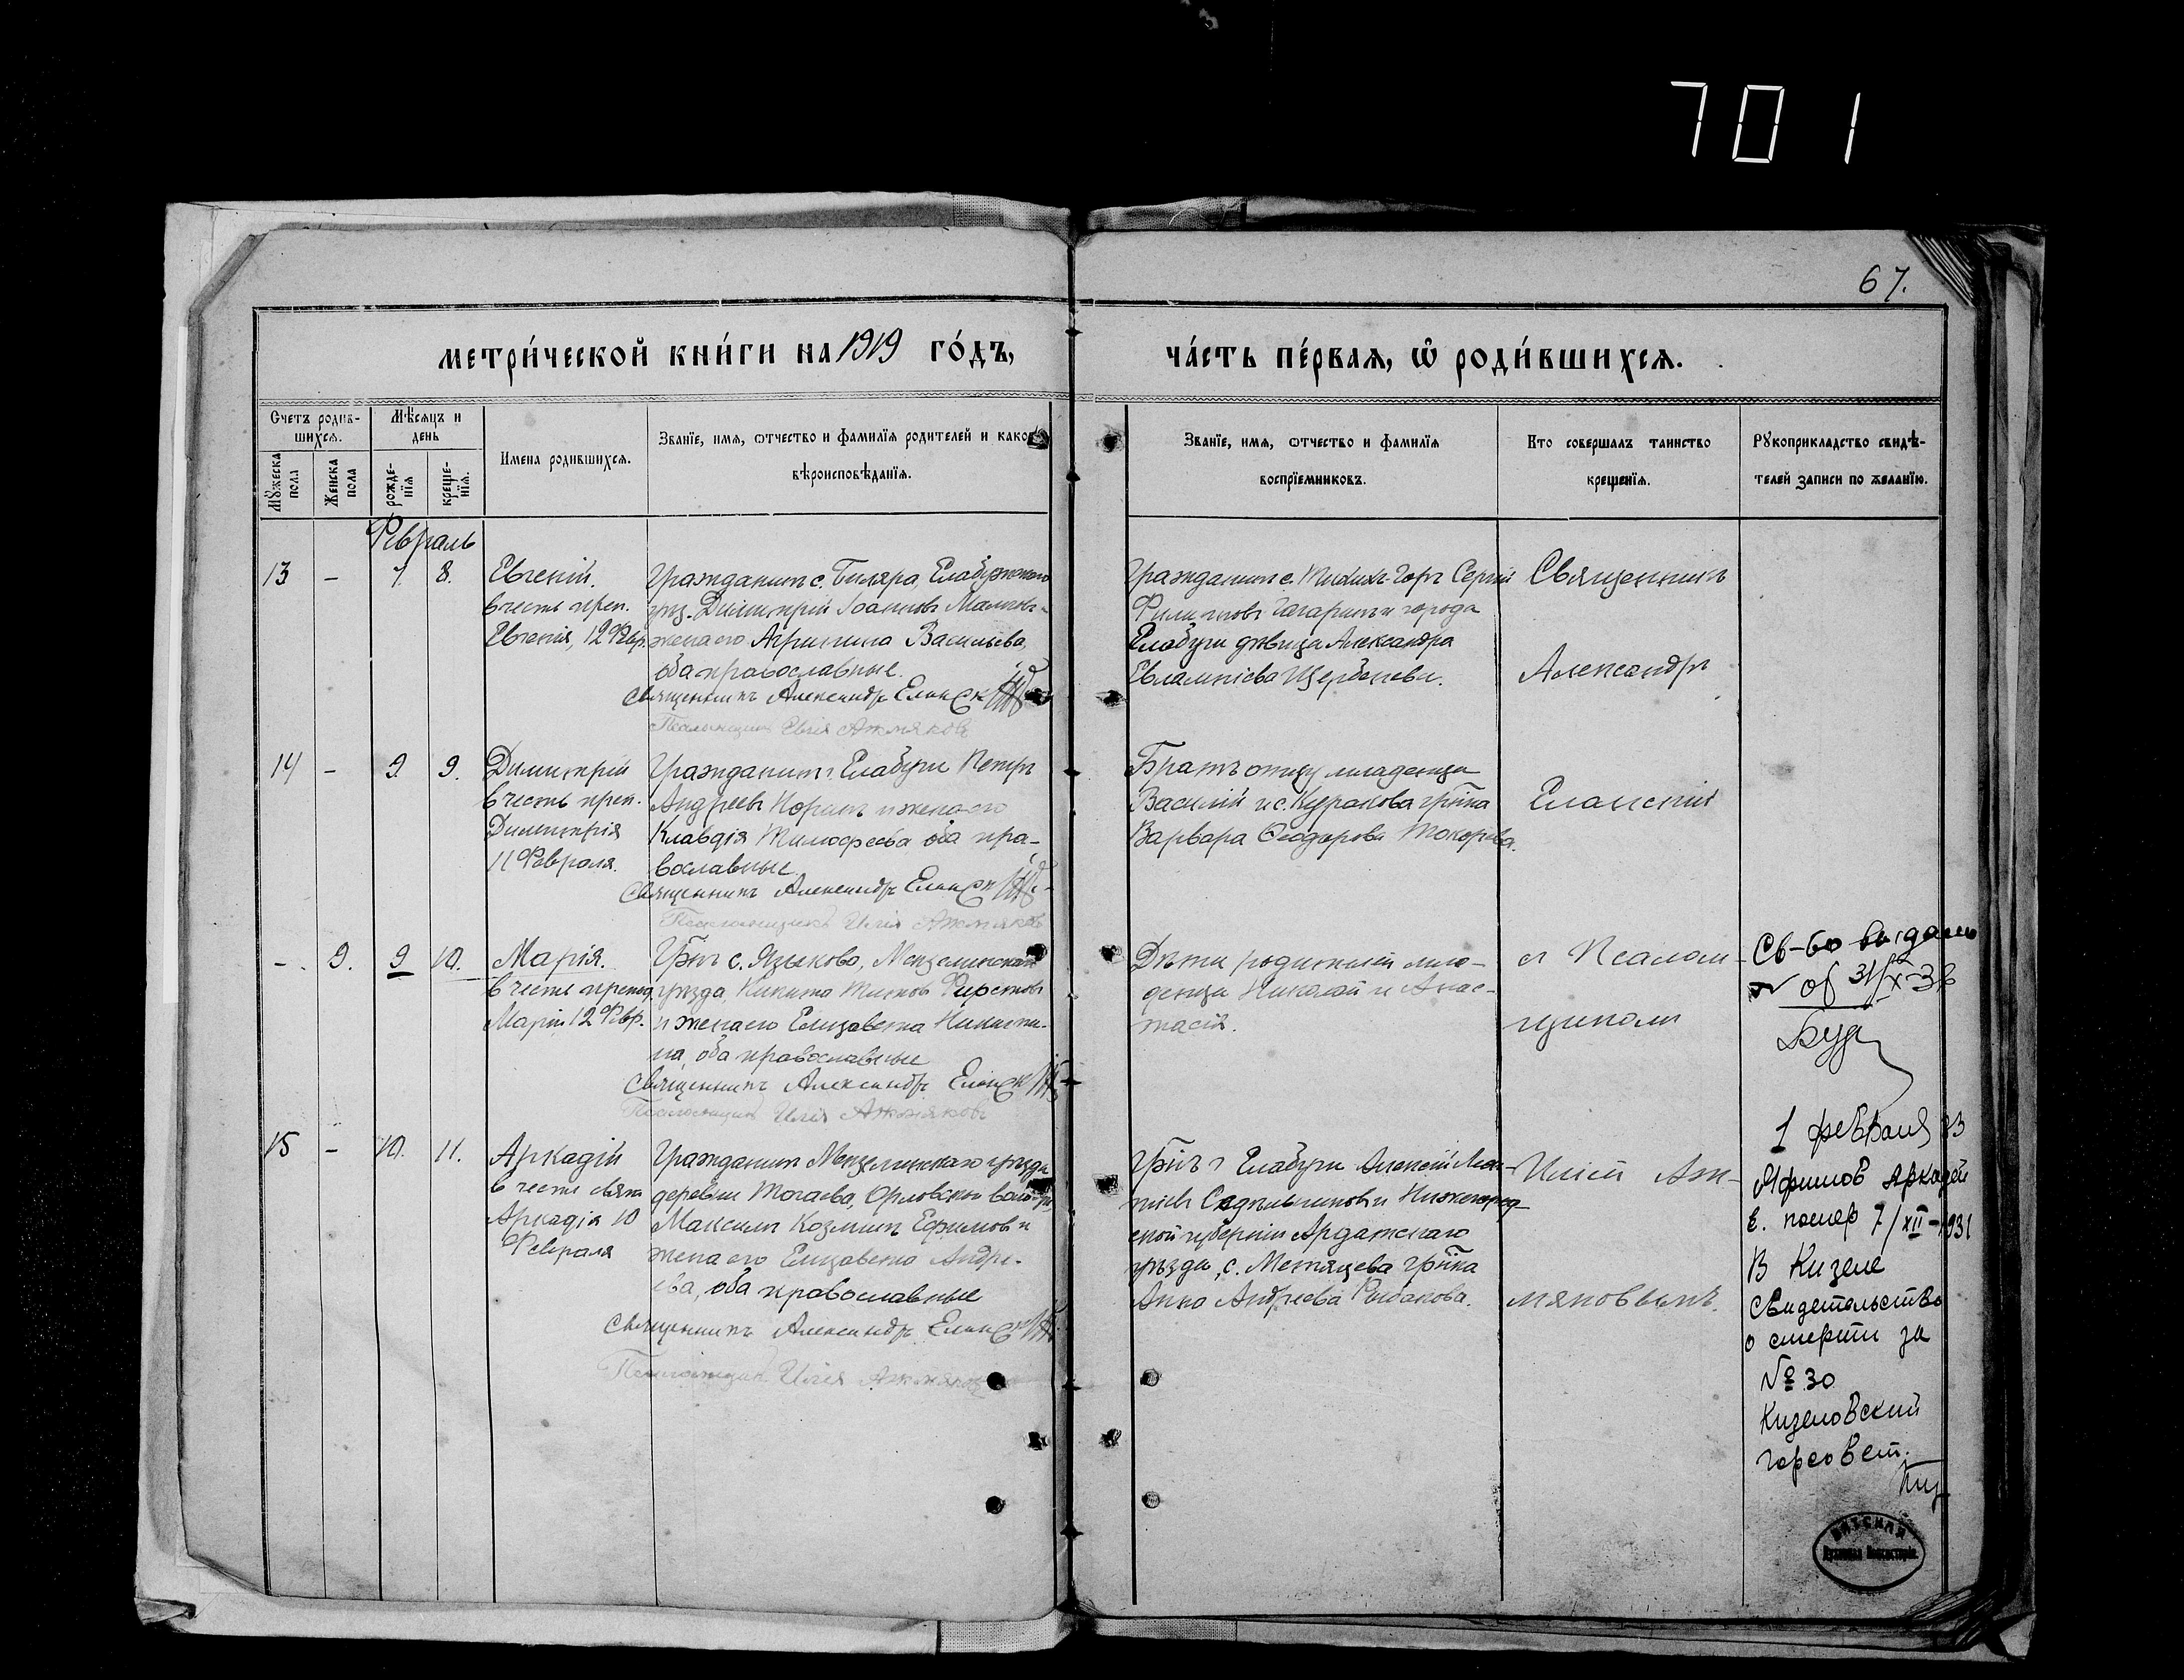 701
67.
метри́ческой кни́ги на 1919 го́дъ,
ча́сть пе́рвая, ѡ роди́вшихся.
Счетъ родив-
шихся.
Мѣсяцъ и
день
Мужеска
пола
Женска
пола
рожде-
нїя
креще-
нїя.
Имена родившихся.
Званїе, имя, ѡтчество и фамилїя родителей и какого
вѣроисповѣданїя.
Званїе, имя, ѡтчество и фамилїя
воспрїемниковъ.
Кто совершалъ таинство
крещенїя.
Рукоприкладство свидѣ-
телей записи по желанїю.
Февраль
13 - 7. 8.
Евгенiй.
в честь преп.
Евгенiя, 12 Февр.
Гражданинъ с. Биляра, Елабужскаго
уѣз. Димитрiй Iоанновъ
жена его Агрипина Васильева,
оба православные.
Священникъ Александръ Еланскiй
Псаломщикъ Илiя Ажмяковъ
Гражданинъ с. Тихихъ-Горъ Сергiй
Филипповъ Гагаринъ и города
Елабуги дѣвица Александра
Евлампiева Щербенева.
Священникъ
Александръ
14 - 9. 9.
Димитрiй
в честь преп.
Димитрiя
11 Февраля.
Гражданинъ г. Елабуги Петръ
Андреевъ и жена его
Клавдiя Тимофеева оба пра-
вославные.
Священникъ Александръ Еланскiй
Псаломщикъ Илiя Ажмяковъ
Братъ отцу младенца
Василiй и с. Куракова гр-ка
Варвара Ѳеодорова Токарева.
Еланскiй
- . 9. 9 10.
Марiя.
в честь препод.
Марiи 12 Февр.
Гр-нъ с. Языкова, Мензелинскаго
уѣзда, Никита Титовъ Фирстовъ
и жена его Елизавета Никити-
на, оба православные
Священникъ Александръ Еланскiй
Псаломщикъ Илiя Ажмяковъ
Дѣти родителей мла-
денца Николай и Анас-
тасiя.
с Псалом-
щикомъ
Св-во выдано
об 31/X-36
15 - 10. 11.
Аркадiй
в честь свят.
Аркадiя 10
Февраля
Гражданинъ Мензелинскаго уѣзда
деревни Тогаева, Орловской волости
Максимъ Козминъ Ефимовъ и
жена его Елизавета Андре-
ева, оба православные
Священникъ Александръ Еланскiй
Псаломщикъ Илiя Ажмяковъ
Гр-нъ г. Елабуги Алексiй
Седельниковъ и Нижегород-
ской губернiи Ардатскаго
уѣзда, с. Метяцева гр-ка
Анна Андреева Рыбакова.
Илiей Аж-
мяковымъ.
1 февраля 33
Афимов Аркадей
помер 7/XII-1931
В Кизеле
Свидетельство
о смерти за
№ 30
Кизеловский
горсовет.
ВЯТСКАЯ
Духовная Консисторія.